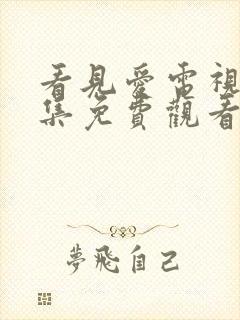 看見愛電視
集免費觀看
夢飛自己